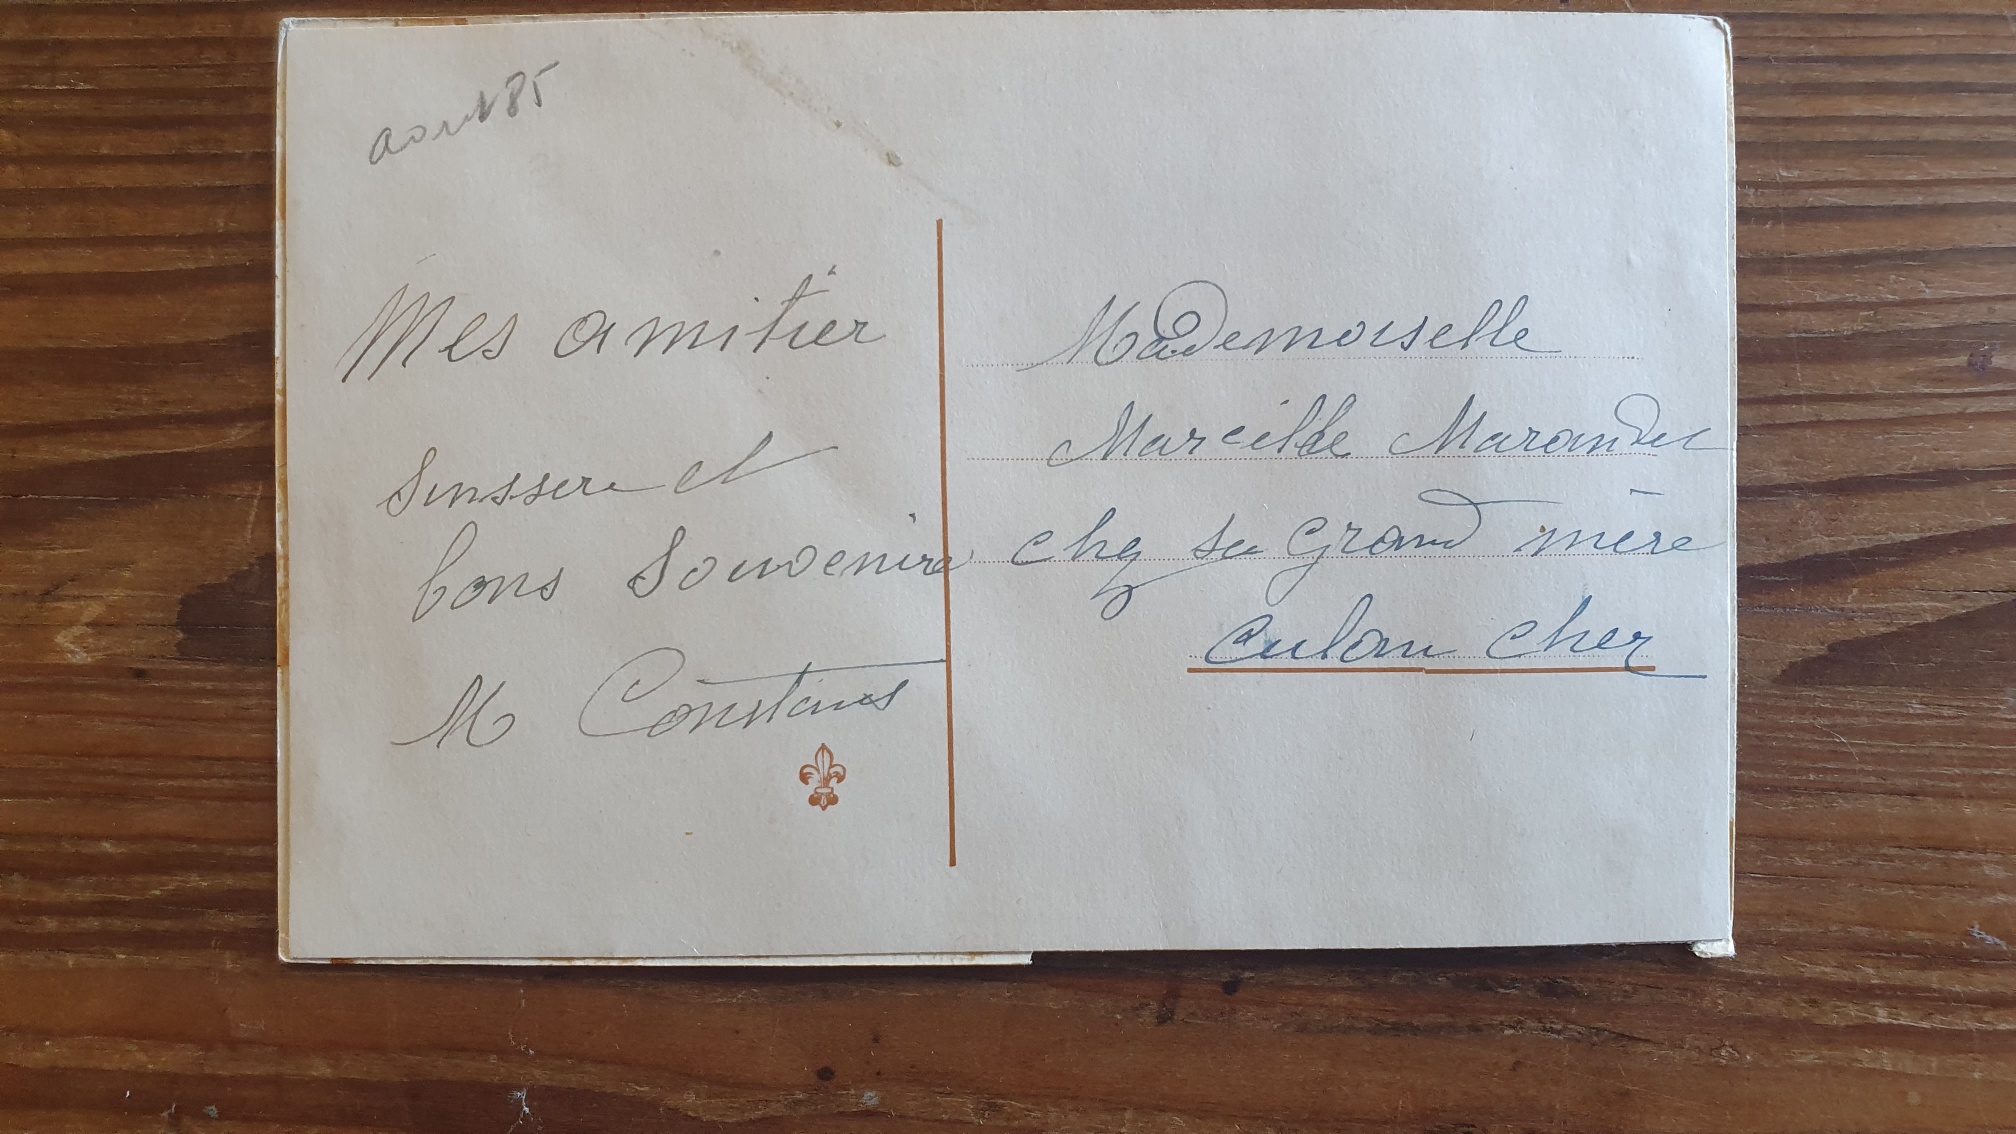 août 85
Mes amitier
sinssere et
bons souvenire
M Constans
Mademoiselle
Marcelle Marandet
chez sa grand mère
Culan Cher